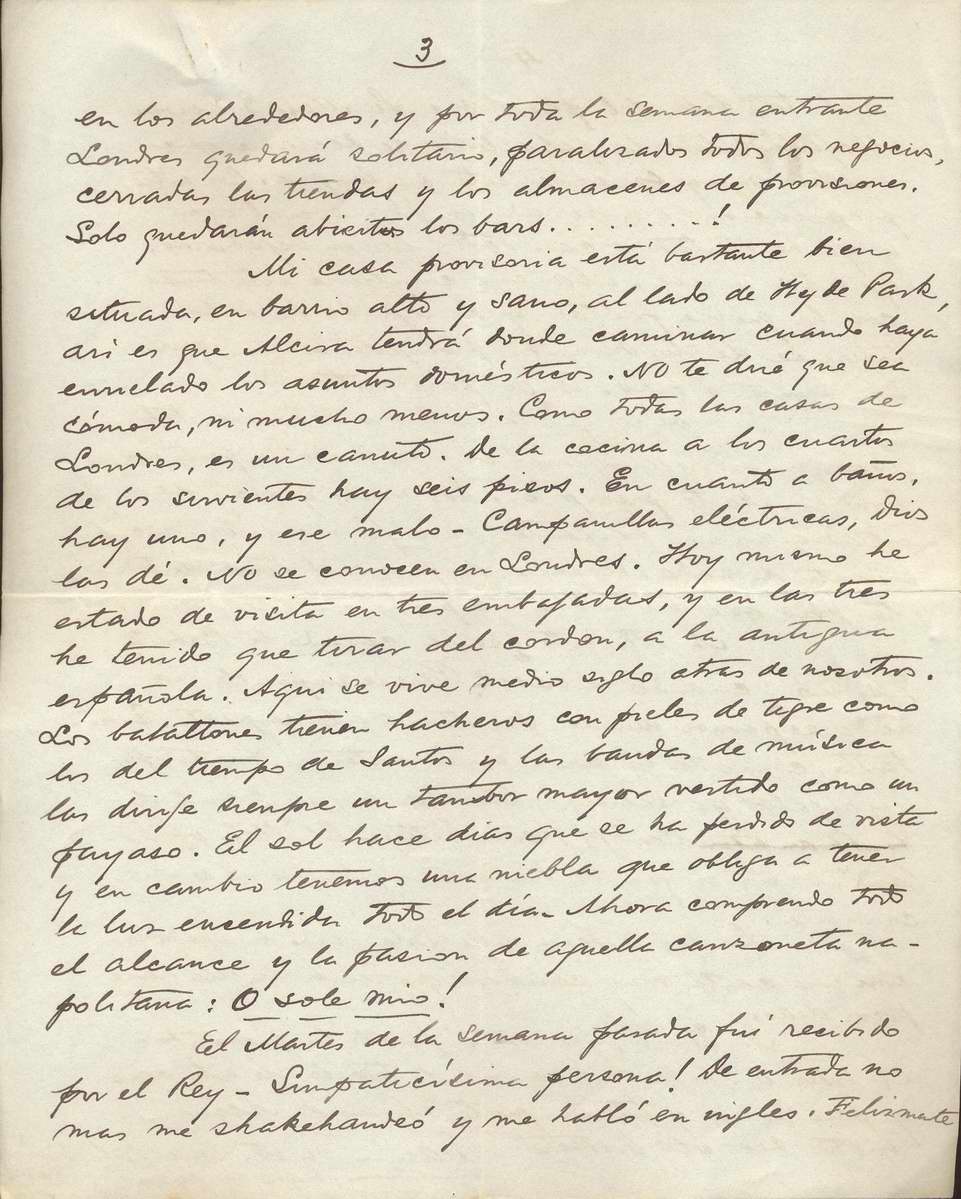 3
en los alrededores, y por toda la semana entrante
Londres quedará solitario, paralizados todos los negocios,
cerradas las tiendas y los almacenes de provisiones.
Solo quedarán abiertos los bars........!
Mi casa provisoria está bastante bien
situada, en barrio alto y sano, al lado de Hyde Park,
asi es que Alcira tendrá donde caminar cuando haya
enrielado los asuntos domésticos. No te diré que sea
cómoda, ni mucho menos. Como todas las casas de
Londres, es un canuto. De la cocina a los cuartos
de los sirvientes hay seis pisos. En cuanto a baños,
hay uno, y ese malo - Campanillas eléctricas, Dios
las dé. No se conocen en Londres. Hoy mismo he
estado de visita en tres embajadas, y en las tres
he tenido que tirar del cordon, a la antigua
española. Aqui se vive medio siglo atras de nosotros.
Los batallones tienen hacheros con pieles de tigre como
los del tiempo de Santos y las bandas de música
las dirije siempre un tambor mayor vestido como un
payaso. El sol hace dias que se ha perdido de vista
y en cambio tenemos una niebla que obliga a tener
la luz encendida todo el día - Ahora comprendo todo
el alcance y la pasion de aquella canzoneta na-
politana: O sole mio!
El Martes de la semana pasada fuí recibido
por el Rey - Simpaticísima persona! De entrada no
mas me shakehandeó y me habló en ingles. Felizmente